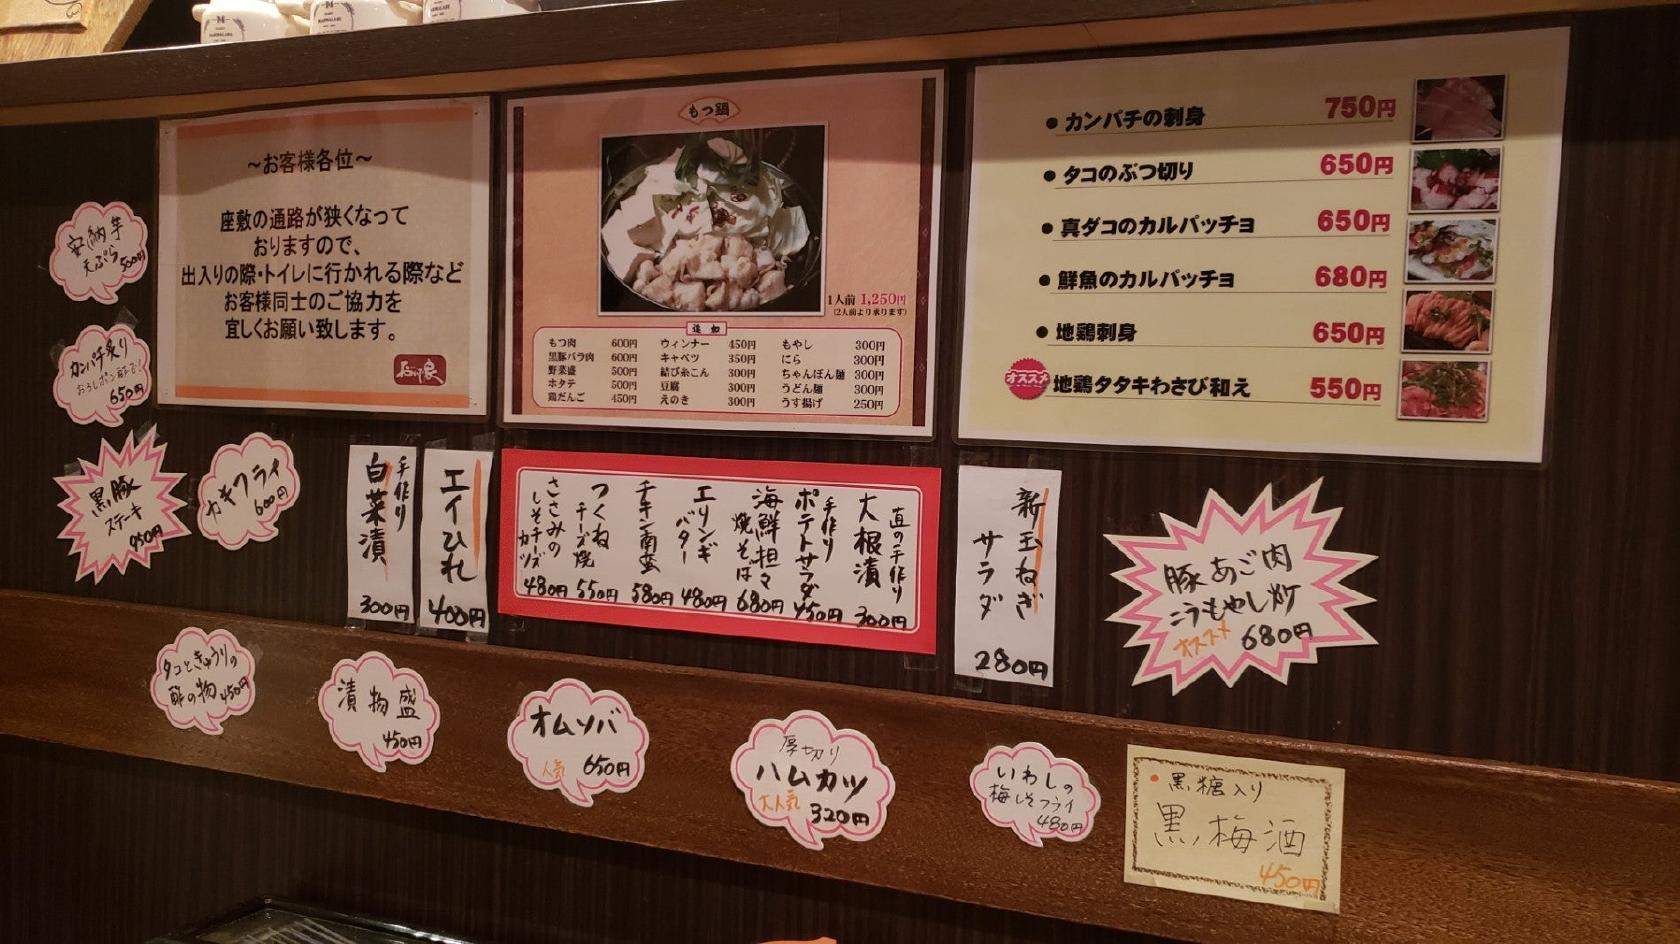 ～お客様各位～
座敷の通路が狭くなって
おりますので、
出入りの際・トイレに行かれる際など
お客様同士のご協力を
宜しくお願い致します。
もつ鍋
1人前 1,250円
(2人前より承ります)
追加
もつ肉 600円
黒豚バラ肉 600円
野菜盛 500円
ホタテ 500円
鶏だんご 450円
ウィンナー 450円
キャベツ 350円
結び糸こん 300円
豆腐 300円
えのき 300円
もやし 300円
にら 300円
ちゃんぽん麺 300円
うどん麺 300円
うす揚げ 250円
●カンパチの刺身 750円
●タコのぶつ切り 650円
●真ダコのカルパッチョ 650円
●鮮魚のカルパッチョ 680円
●地鶏刺身 650円
オススメ 地鶏タタキわさび和え 550円
安納芋
天ぷら 500円
カンパチ炙り
おろしポン酢で!
650円
黒豚
ステーキ
950円
カキフライ
600円
手作り
白菜漬
300円
エイひれ
400円
直の手作り
大根漬
300円
手作り
ポテトサラダ
450円
海鮮担々
焼そば
680円
エリンギ
バター
480円
チキン南蛮
580円
つくね
チーズ焼
550円
ささみの
しそチーズ
カツ
480円
新玉ねぎ
サラダ
280円
豚あご肉
こうもやし炒
オススメ 680円
タコときゅうりの
酢の物 450円
漬物盛
450円
オムソバ
人気 650円
厚切り
ハムカツ
大人気 320円
いわしの
梅しそフライ
480円
・黒糖入り
黒梅酒
450円